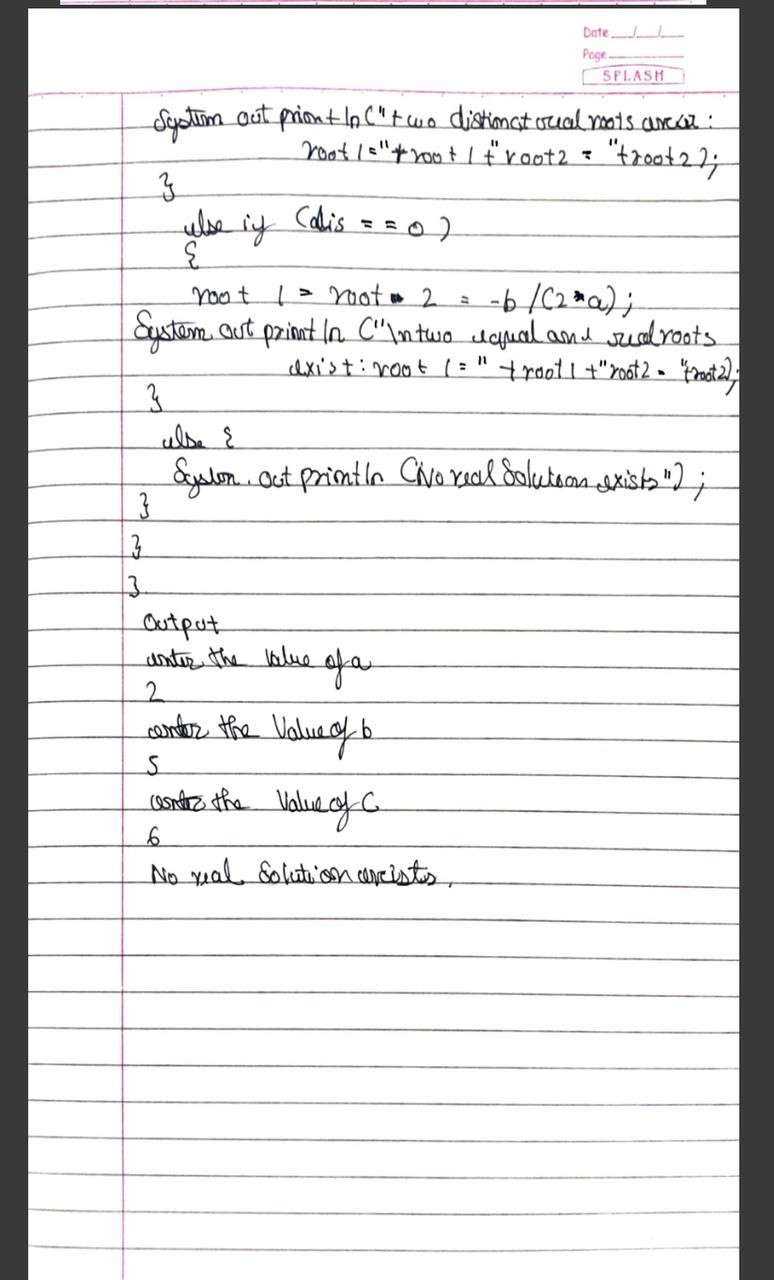 Date __/__/__
Page
SPLASH
System out print ln ("two distinct real roots are:
root 1="+root 1+"root2 = "+root2);
}
else if (dis = = 0)
{
root 1 = root 2 = -b /(2*a);
System out print ln ("\n two equal and real roots
exist: root 1 = " +root1+"root2 = "+root2);
}
else {
System . out println (No real Solution exists");
}
}
}
Output
enter the value of a
2
enter the Value of b
5
enter the Value of C
6
No real Solution exists.